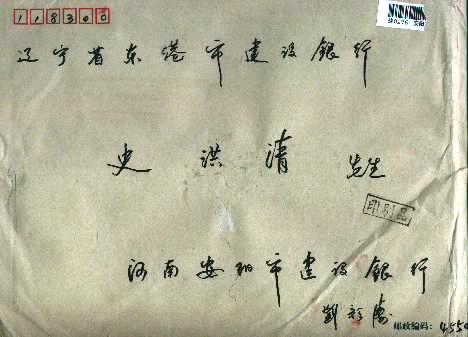 118300
辽宁省东港市建设銀行
史洪清 先生
印刷品
河南安阳市建设銀行
劉
邮政编码: 4550